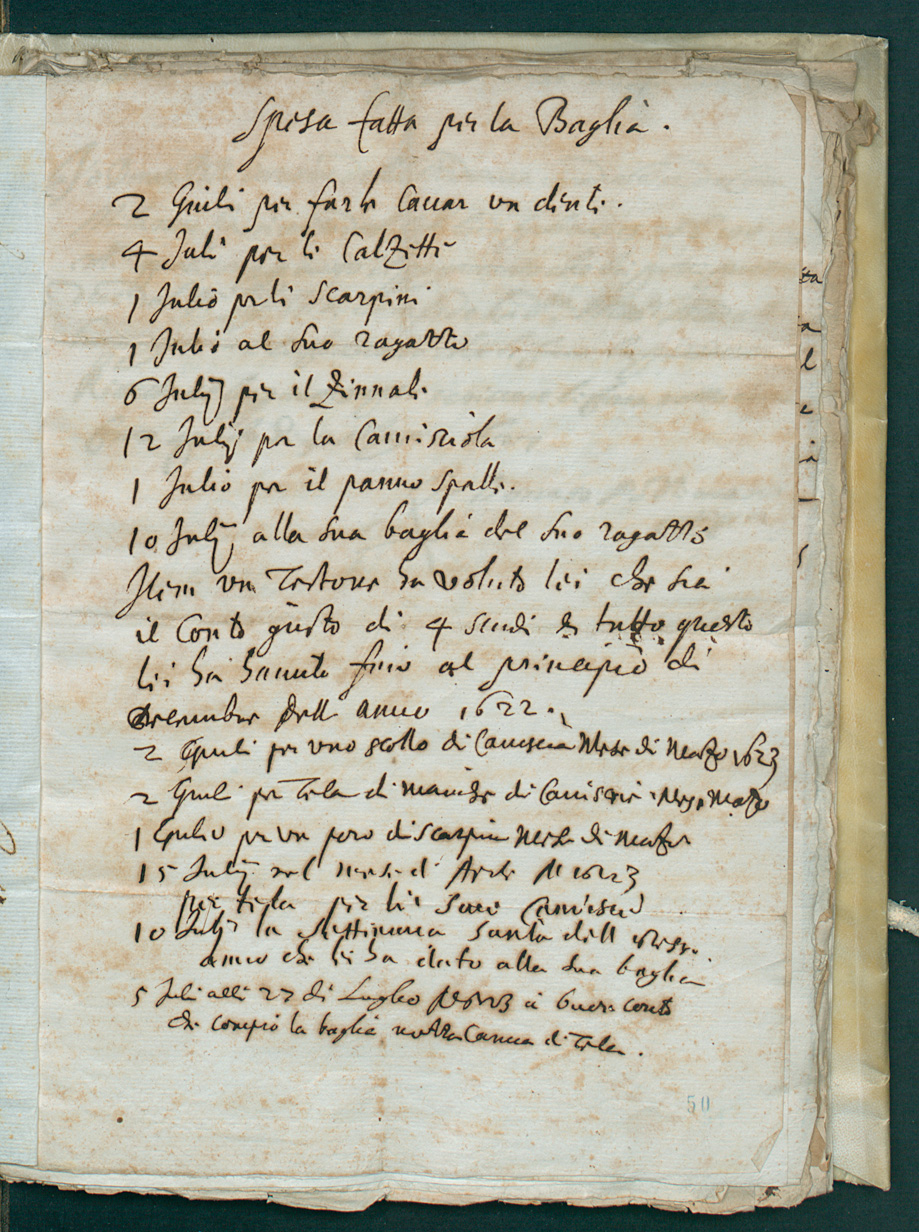 Spesa fatta per la Baglia.
2 Giuli per farle cauar un dente.
4 Juli per li Calzetti
1 Julio per li Scarpini
1 Julio al suo ragazzo
6 Julij per il Zinnale
12 Julij per la Camisciola
1 Julio per il panno spalle.
10 Julij alla sua baglia del suo ragazzo
Item un Testone ha voluto lei che sia
il Conto giusto di 4 scudi & tutto questo
lei ha hauuto fino al principio di
Decembre dell anno 1622.
2 Giuli per uno scollo di Camiscia Mese di Marzo 1623
2 Giuli per Tela di maniche di Camiscie Mese Marzo
1 Giulio per un paro di scarpini Mese di Marzo
15 Julij nel mese d' Aprile 1623
per tela per le sue Camiscie
10 Julij la Settimana Santa dell
anno che li ha dato alla sua baglia
5 Juli alli 27 di Luglio 1623 a buon conto
che comprò la baglia mezza Canna di Tela.
50